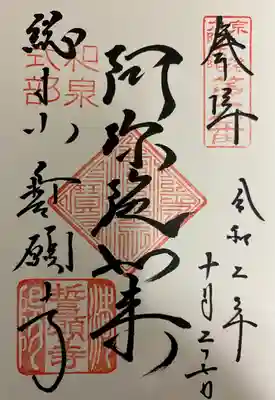 奉拝
令和二年
十月二十七日
阿弥陀如来
総本山 誓願寺
和泉
式部
誓願寺